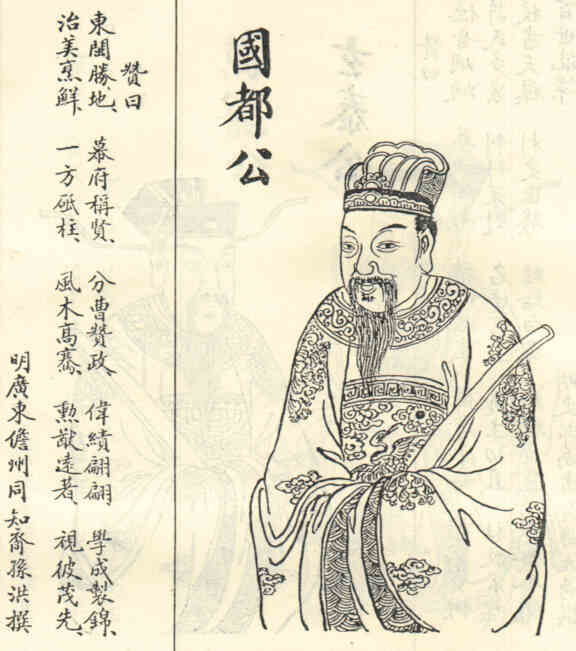 國都公
贊曰
東閩勝地、幕府稱賢、分曹贊政、偉績翩翩學成製錦、
治美烹鮮、一方砥柱、風木高騫、勲猷遠著、視彼茂先、
明廣東儋州同知裔孫洪撰